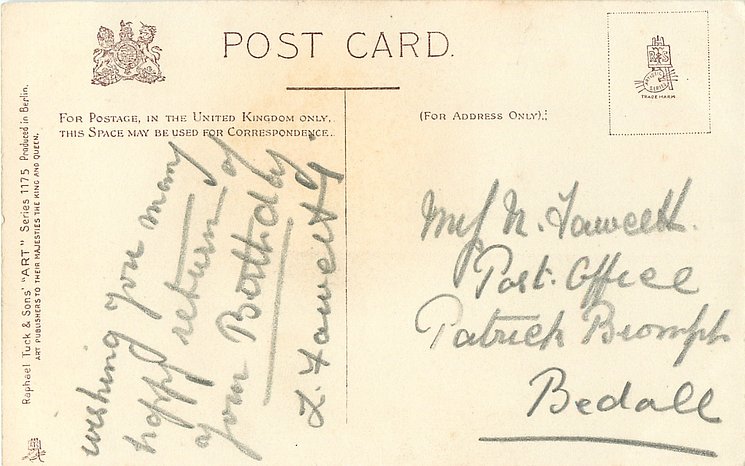 POST CARD.
FOR POSTAGE, IN THE UNITED KINGDOM ONLY,
THIS SPACE MAY BE USED FOR CORRESPONDENCE.
(FOR ADDRESS ONLY).
TRADE MARK
Raphael Tuck & Sons' "ART" Series 1175 Produced in Berlin.
ART PUBLISHERS TO THEIR MAJESTIES THE KING AND QUEEN.
wishing you many
happy returns of
your Birthday
L. Fawcett
N. Fawcett.
Post. Office
Patrick Bromph
Bedall